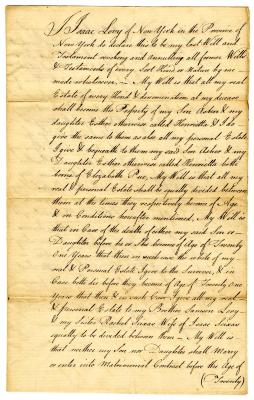 I Isaac Levy of New York in the Province of
New York do declare this to be my Last Will and
Testament revoking and Annulling all former Wills
& Testaments of every Sort Kind or Nature by me
made whatsoever. - My Will is that all my real
Estate of every Kind & denomination at my decease
shall become the Property of my Son Asher & my
daughter Esther otherwise called Henrietta & I do
give the same to them as also all my personal Estate
I give & bequeath to them my said Son Asher & my
Daughter Esther otherwise called Henrietta both
borne of Elizabeth Pue, My Will is that all my
real & personal Estate shall be equally divided between
them at the times they respectively become of Age
& in Conditions hereafter mentioned. My Will is
that in Case of the death of either my said Son or
Daughter before he or She become of Age of Twenty
One Years that then in such case the whole of my
real & Personal Estate I give to the Survivor, & in
Case both die before they become of Age of Twenty One
Years that then & in such Case I give all my real
& personal Estate to my Brother Samson Levy
& my Sister Rachel Isaacs Wife of Isaac Isaacs
equally to be divided between them - My Will is
that neither my Son nor Daughter shall Marry
or enter into Matrimonial Contract before the Age of
(Twenty)